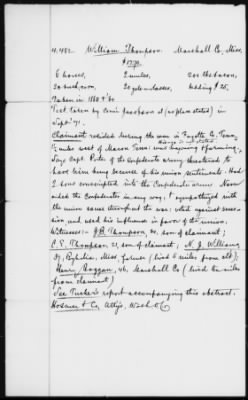 William Thompson. Marshall Co, Miss.
6 horses, 2 mules, 200 lbs bacon,
bedding $25.
Taken in 1862 &
Test. taken by Comr Jacobson at (no place stated) in
Sept. '71.
Claimant resided during the war in Fayette Co Tenn,
miles west of Macon Tenn: was engaged in farming,
Says Capt. Porter of the Confederate army threatened to
have him hung because of his union sentiments. Had
conscripted into the Confederate army. Never
aided the Confederates in any way; sympathized with
the union cause throughout the war: voted against secession,
and used his influence in favor of the union.
Witnesses:- J.B. Thompson, son of claimant;
C.E. Thompson, 21, son of claimant; N.J. Williams
37, Byhalia, Miss, farmer (lived 5 miles from clt);
Henry Boggan, 46, Marshall Co (lived miles
from claimant)
See Tucker's report accompanying this abstract.
& Co, Attys, Wash